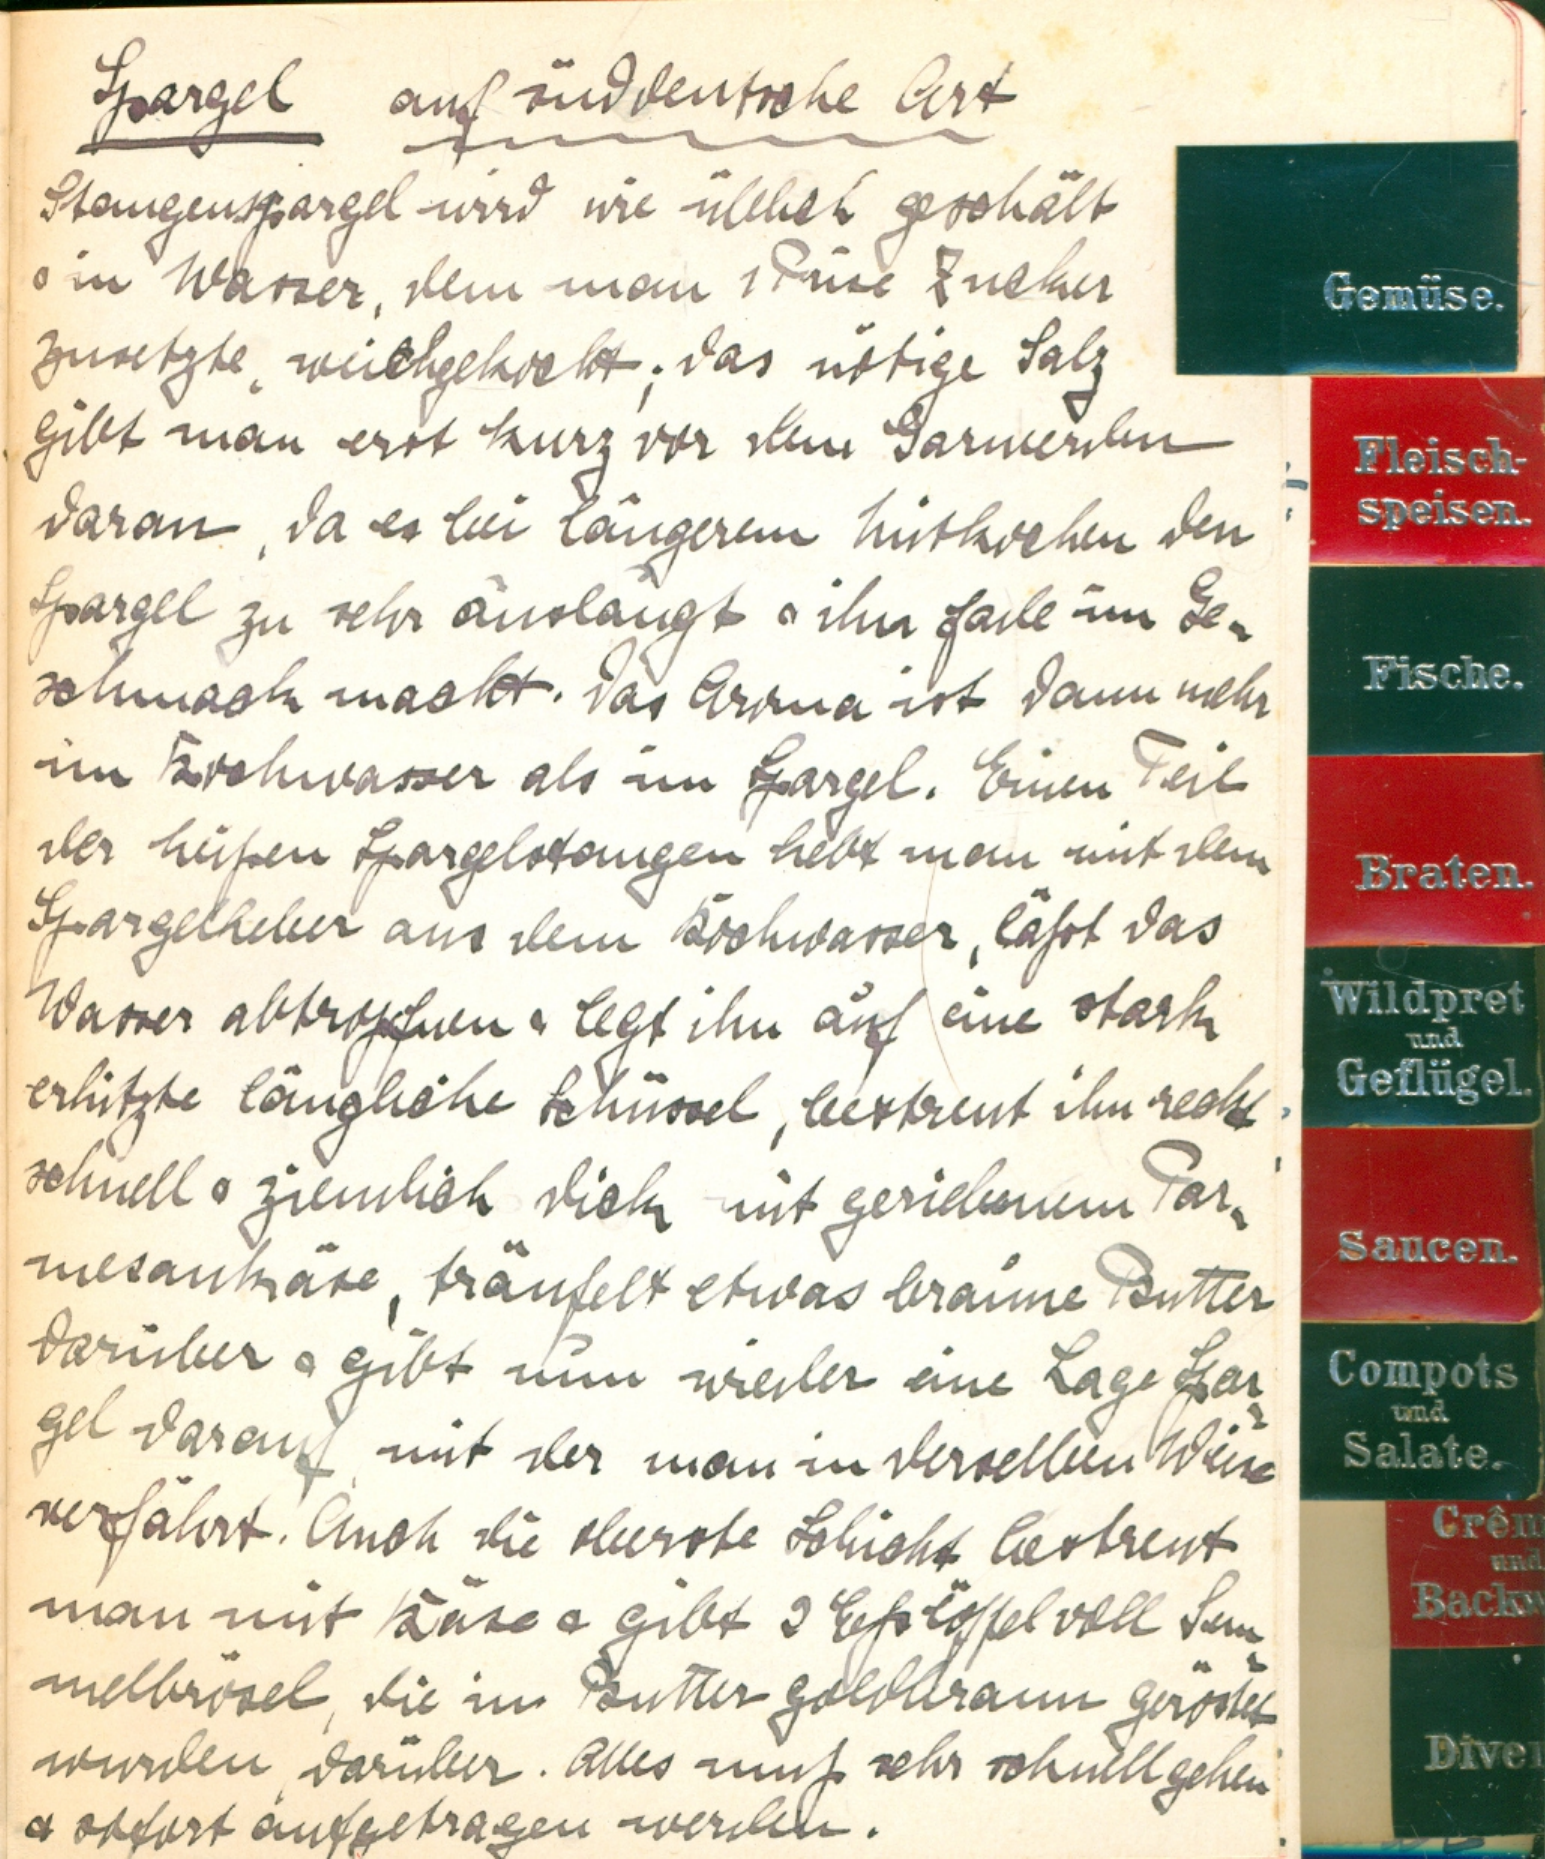 Spargel auf süddeutsche Art
Stangenspargel wird wie üblich geschält
& in Wasser, dem man 1 Prise Zucker
zusetzte, weichgekocht; das nötige Salz
gibt man erst kurz vor dem Garwerden
daran, da es bei längerem Mitkochen den
Spargel zu sehr auslaugt & ihn fade im Ge-
schmack macht. Das Aroma ist dann mehr
im Kochwasser als im Spargel. Einen Teil
der heißen Spargelstangen hebt man mit dem
Spargelheber aus dem Kochwasser, läßt das
Wasser abtropfen & legt ihn auf eine stark
erhitzte längliche Schüssel, bestreut ihn recht
schnell & ziemlich dick mit geriebenem Par-
mesankäse, träufelt etwas braune Butter
darüber & gibt nun wieder eine Lage Spar-
gel darauf, mit der man in derselben Weise
verfährt. Auch die oberste Schicht bestreut
man mit Käse & gibt 2 Eßlöffel voll Sem-
melbrösel, die in Butter goldbraun geröstet
wurden, darüber. Alles muß sehr schnell gehen
& sofort aufgetragen werden.
Gemüse.
Fleisch-
speisen.
Fische.
Braten.
Wildpret
und
Geflügel.
Saucen.
Compots
und
Salate.
Crêm
und
Backw
Diver